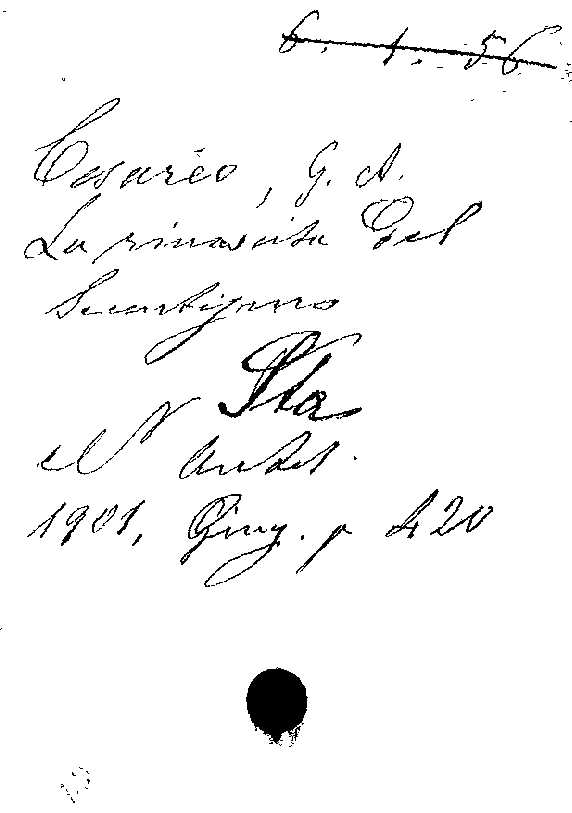 6. 1. 56
Cesareo, G. A.
La rinascita del
Secentismo
Sta
N Antol.
1901, Giug. p 420